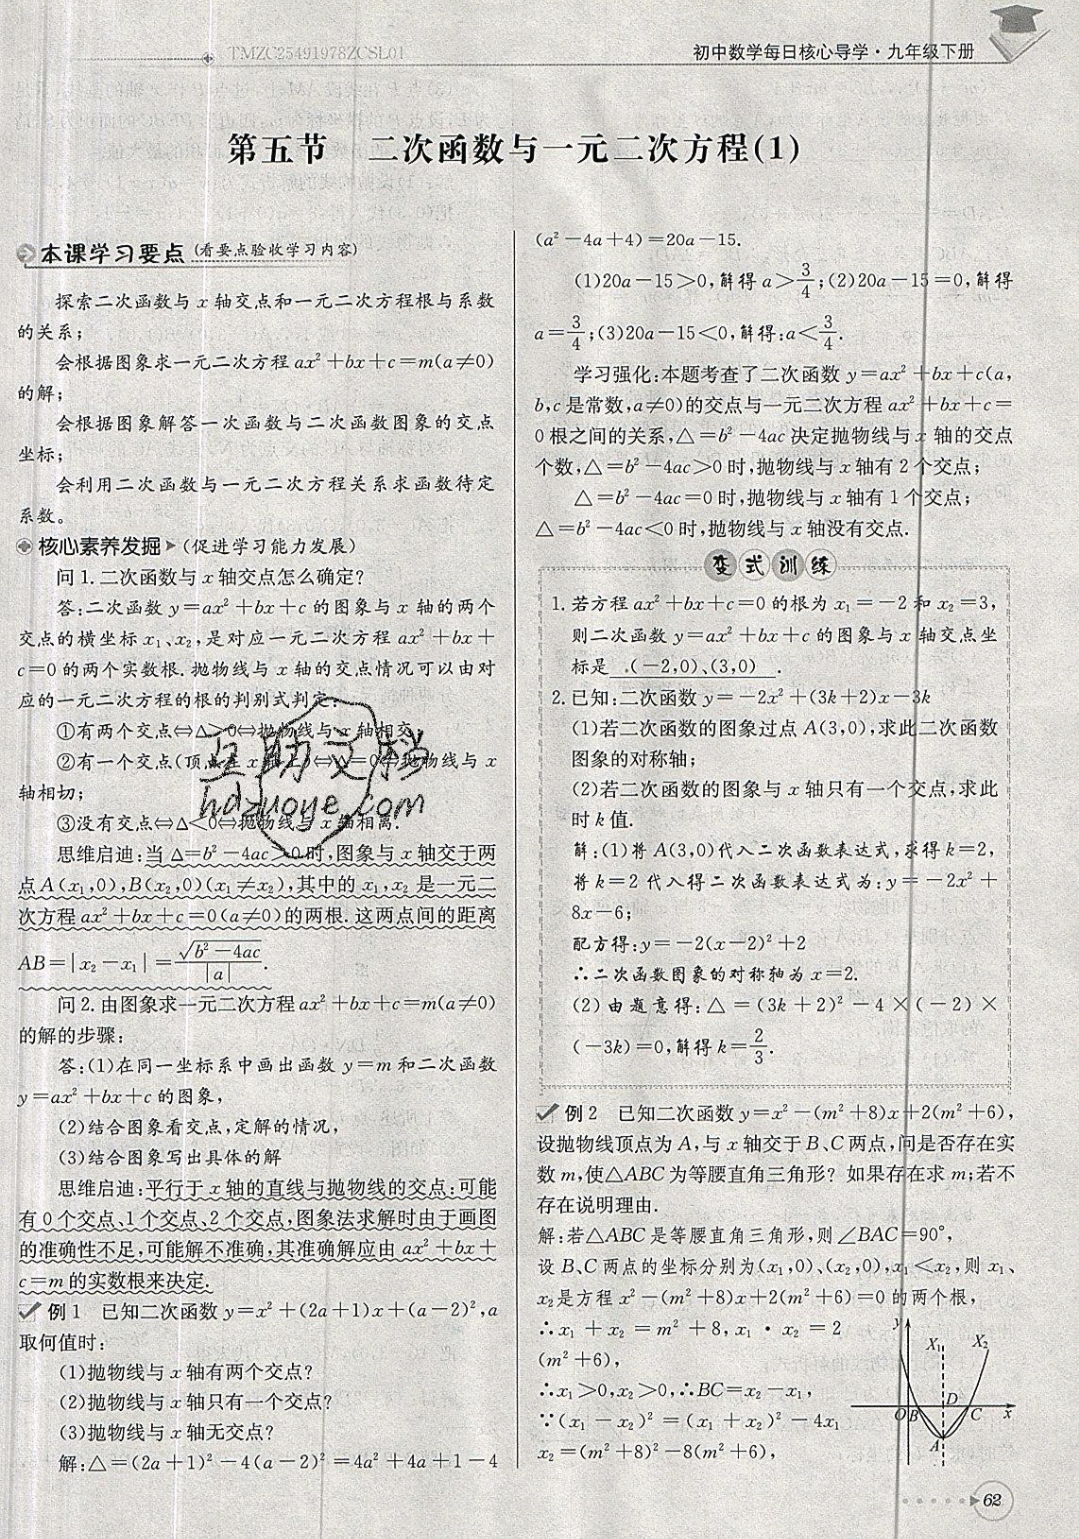 TMZC25491978ZCSL01
初中数学每日核心导学·九年级下册
第五节 二次函数与一元二次方程(1)
本课学习要点(看要点验收学习内容)
探索二次函数与x轴交点和一元二次方程根与系数
的关系;
会根据图象求一元二次方程ax²+bx+c=m(a≠0)
的解;
会根据图象解答一次函数与二次函数图象的交点
坐标;
会利用二次函数与一元二次方程关系求函数待定
系数。
核心素养发掘(促进学习能力发展)
问1.二次函数与x轴交点怎么确定?
答:二次函数y=ax²+bx+c的图象与x轴的两个
交点的横坐标x₁、x₂,是对应一元二次方程ax²+bx+
c=0的两个实数根.抛物线与x轴的交点情况可以由对
应的一元二次方程的根的判别式判定:
①有两个交点⇔△>0⇔抛物线与x轴相交;
②有一个交点(顶点在x轴上)⇔△=0⇔抛物线与x
轴相切;
③没有交点⇔△<0⇔抛物线与x轴相离.
互助文档
hdzuoye.com
思维启迪:当△=b²-4ac>0时,图象与x轴交于两
点A(x₁,0),B(x₂,0)(x₁≠x₂),其中的x₁,x₂是一元二
次方程ax²+bx+c=0(a≠0)的两根.这两点间的距离
AB=|x₂-x₁|=√(b²-4ac)/|a|.
问2.由图象求一元二次方程ax²+bx+c=m(a≠0)
的解的步骤:
答:(1)在同一坐标系中画出函数y=m和二次函数
y=ax²+bx+c的图象,
(2)结合图象看交点,定解的情况,
(3)结合图象写出具体的解
思维启迪:平行于x轴的直线与抛物线的交点:可能
有0个交点、1个交点、2个交点,图象法求解时由于画图
的准确性不足,可能解不准确,其准确解应由ax²+bx+
c=m的实数根来决定.
例1 已知二次函数y=x²+(2a+1)x+(a-2)²,a
取何值时:
(1)抛物线与x轴有两个交点?
(2)抛物线与x轴只有一个交点?
(3)抛物线与x轴无交点?
解:△=(2a+1)²-4(a-2)²=4a²+4a+1-4
(a²-4a+4)=20a-15.
(1)20a-15>0,解得a>3/4;(2)20a-15=0,解得
a=3/4;(3)20a-15<0,解得:a<3/4.
学习强化:本题考查了二次函数y=ax²+bx+c(a,
b,c是常数,a≠0)的交点与一元二次方程ax²+bx+c=
0根之间的关系,△=b²-4ac决定抛物线与x轴的交点
个数,△=b²-4ac>0时,抛物线与x轴有2个交点;
△=b²-4ac=0时,抛物线与x轴有1个交点;
△=b²-4ac<0时,抛物线与x轴没有交点.
变式训练
1.若方程ax²+bx+c=0的根为x₁=-2和x₂=3,
则二次函数y=ax²+bx+c的图象与x轴交点坐
标是 (-2,0)、(3,0) .
2.已知:二次函数y=-2x²+(3k+2)x-3k
(1)若二次函数的图象过点A(3,0),求此二次函数
图象的对称轴;
(2)若二次函数的图象与x轴只有一个交点,求此
时k值.
解:(1)将A(3,0)代入二次函数表达式,求得k=2,
将k=2代入得二次函数表达式为:y=-2x²+
8x-6;
配方得:y=-2(x-2)²+2
∴二次函数图象的对称轴为x=2.
(2)由题意得:△=(3k+2)²-4×(-2)×
(-3k)=0,解得k=2/3.
例2 已知二次函数y=x²-(m²+8)x+2(m²+6),
设抛物线顶点为A,与x轴交于B、C两点,问是否存在实
数m,使△ABC为等腰直角三角形?如果存在求m;若不
存在说明理由.
解:若△ABC是等腰直角三角形,则∠BAC=90°,
设B、C两点的坐标分别为(x₁,0)、(x₂,0),x₁<x₂,则x₁、
x₂是方程x²-(m²+8)x+2(m²+6)=0的两个根,
∴x₁+x₂=m²+8,x₁·x₂=2
(m²+6),
∴x₁>0,x₂>0,∴BC=x₂-x₁,
∵(x₁-x₂)²=(x₁+x₂)²-4x₁
x₂=(m²+8)²-8(m²+6),
y X₁ X₂
O B D C x
A
62